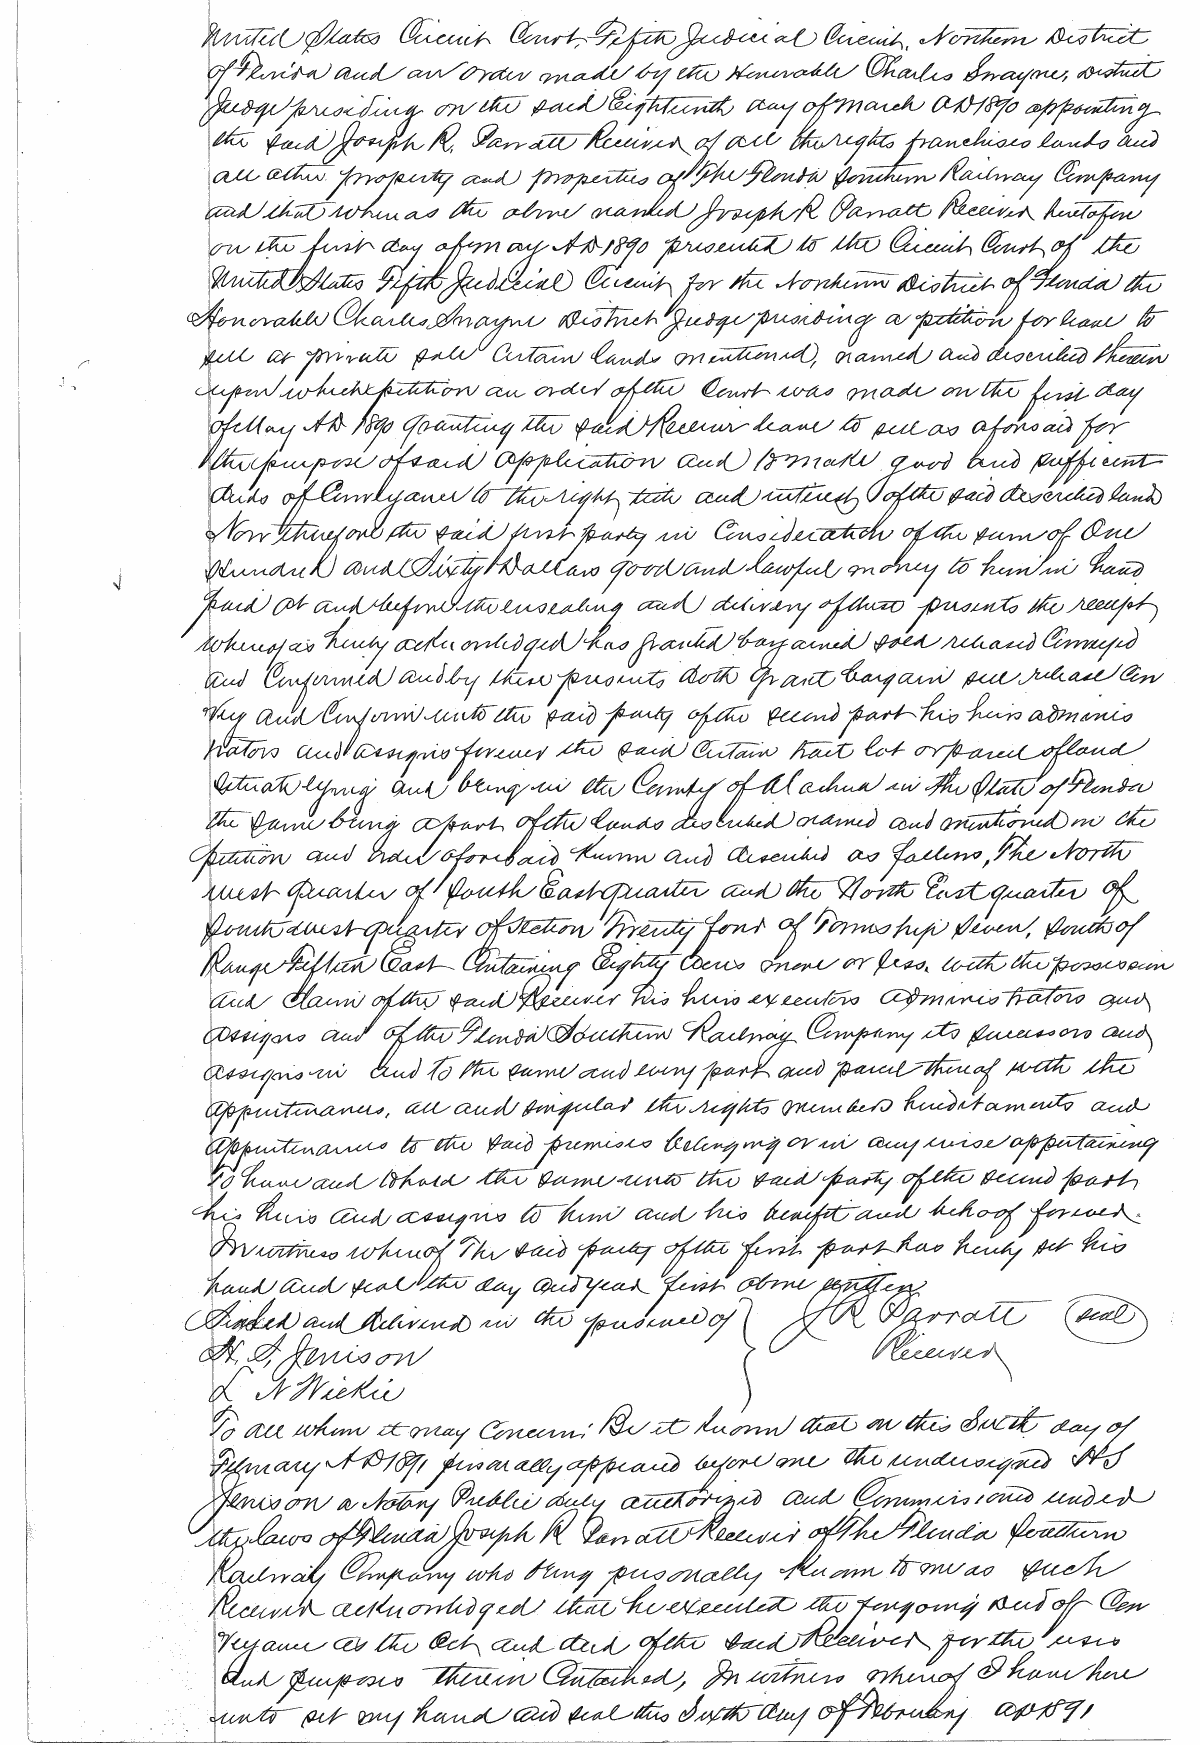 United States Circuit Court, Fifth Judicial Circuit, Northern District
of Florida and an order made by the Honorable Charles Swayne, District
Judge presiding on the said Eighteenth day of March AD 1890 appointing
the said Joseph R. Parratt Receiver of all the rights franchises lands and
all other property and properties of The Florida Southern Railway Company
and that whereas the above named Joseph R Parratt Receiver heretofore
on the first day of may AD 1890 presented to the Circuit Court of the
United States Fifth Judicial Circuit for the Northern District of Florida the
Honorable Charles Swayne District Judge presiding a petition for leave to
sell at private sale certain lands mentioned, named and described therein
upon which petition an order of the Court was made on the first day
of May AD 1890 granting the said Receiver leave to sell as aforesaid for
the purpose of said application and to make good and sufficient
deeds of Conveyance to the right title and interest of the said described lands
Now therefore the said first party in Consideration of the sum of One
Hundred and Sixty Dollars good and lawful money to him in hand
paid at and before the ensealing and delivery of these presents the receipt
whereof is hereby acknowledged has granted bargained sold released Conveyed
and Confirmed and by these presents doth grant bargain sell release Con
vey and Confirm unto the said party of the second part his heirs adminis
trators and assigns forever the said certain tract lot or parcel of land
situate lying and being in the County of Alachua in the State of Florida
the same being a part of the lands described named and mentioned in the
petition and order aforesaid known and described as follows, The North
west quarter of South East quarter and the North East quarter of
South west quarter of Section Twenty four of Township Seven, South of
Range Fifteen East Containing Eighty acres more or less. with the possession
and claim of the said Receiver his heirs executors administrators and
assigns and of the Florida Southern Railway Company its successors and
assigns in and to the same and every part and parcel thereof with the
appurtenances, all and singular the rights members hereditaments and
appurtenances to the said premises belonging or in any wise appertaining
To have and to hold the same unto the said party of the second part
his heirs and assigns to him and his benefit and behoof forever.
In witness whereof The said party of the first part has hereby set his
hand and seal the day and year first above written
Signed and delivered in the presence of J R Parratt (seal)
H. S. Jenison Receiver
L N Wickie
To all whom it may Concern; Be it known that on this Sixth day of
February AD 1891 personally appeared before me the undersigned H S
Jenison a Notary Public duly authorized and Commissioned under
the laws of Florida Joseph R Parratt Receiver of The Florida Southern
Railway Company who being personally known to me as such
Receiver acknowledged that he executed the foregoing deed of Con
veyance as the act and deed of the said Receiver for the uses
and purposes therein Contained, In witness whereof I have here
unto set my hand and seal this Sixth day of February AD 1891